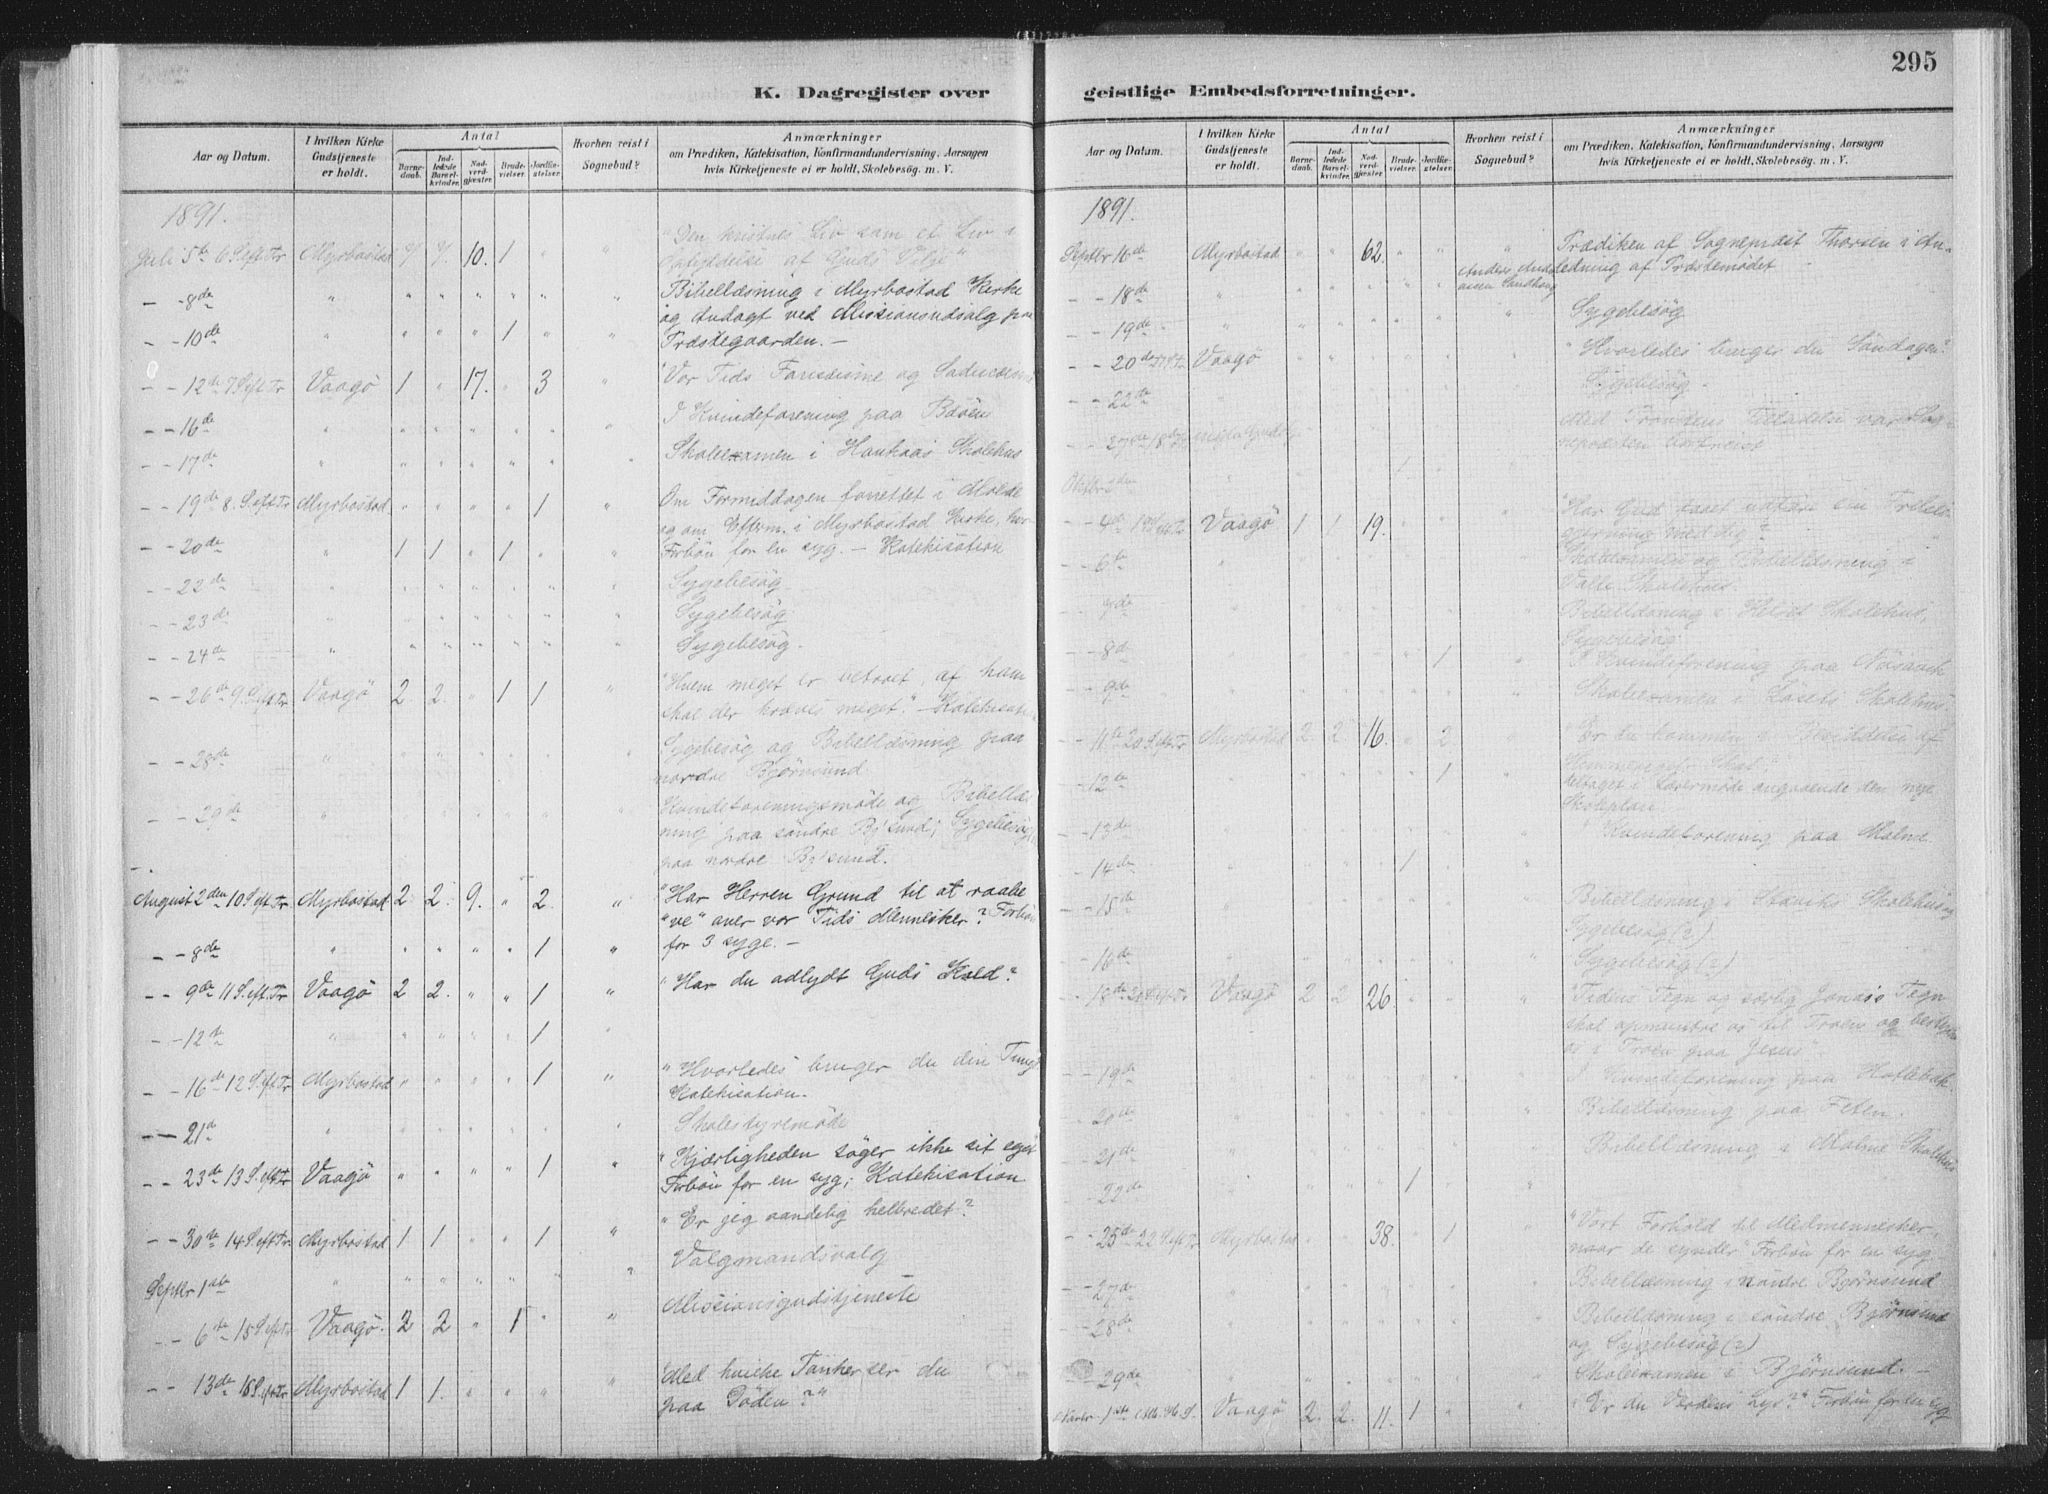 K. Dagregister over
Aar og Datum.
I hvilken Kirke Gudstjeneste er holdt.
Antal
Barne-daab.
Ind-ledede Barsel-kvinder.
Nad-verd-gjæster.
Brude-vielser.
Jordfæ-stelser.
Hvorhen reist i Sognebud?
Anmærkninger
om Prædiken, Katekisation, Konfirmandundervisning, Aarsagen
hvis Kirketjeneste ei er holdt, Skolebesög. m. V.
1891.
Juli 5te 6 S eft Tr Myrbostad 10. 1 " " "Den kristnes Liv som et Liv i
Opfyldelse af Guds Vilje"
- - 8de " " " " " " " Bibellæsning i Myrbostad Kirke
og Andagt ved Missionsudsalg paa
- - 10de " " " " 1 " " Præstegaarden. -
- - 12te 7 S eft Tr Vaagö 1 " 17. " 3 " "Vor Tids Fariseisme og
- - 16de " " " " " " " I Kvindeforening paa
- - 17de " " " " " " " Skoleexamen i Haukaas Skolehus
- - 19de 8. S eft Tr Myrbostad " " " " 1 " Om Formiddagen forrettet i Molde
og om Efterm. i Myrbostad Kirke, hvor
- - 20de " 1 1 " 1 " " Forbön for en syg. - Katekisation
- - 22de " " " " " " " Sygebesög
- - 23de " " " " " " " Sygebesög
- - 24de " " " " " " " Sygebesög.
- - 26de 9. S eft Tr Vaagö 2 2. " 1 1 " "Hvem meget er betroet, af ham
skal der kræves meget." - Katekisation
- - 28de " " " " " " " Sygebesög og Bibellæsning paa
nordre Bjørnsund.
- - 29de " " " " " " " Kvindeforeningsmöde og Bibellæs-
ning paa söndre Bj'sund; Sygebesög
paa nordre Bj'sund.
August 2den 10 S eft Tr. Myrbostad 2 2. 9. " 2. " "Har Herren Grund til at raabe
"ve" over vor Tids Mennesker? Forbön
- - 8de " " " " " 1 " for 3 syge. -
- - 9de 11 S. eft. Tr Vaagö 2 2. " " 1 " "Har du adlydt Guds Kald?
- - 12te " " " " " 1 "
- - 16de 12 S. eft. Tr Myrbostad " " " " 1 " "Hvorledes bruger du din Tunge
Katekisation.
- - 21de " " " " " " " Skolestyremöde
- - 23de 13 S. eft Tr Vaagö " " " " 1 " "Kjærligheden söger ikke sit eget
Forbön for en syg; Katekisation
"Er jeg aandelig helbredet?
- - 30te 14 S eft Tr. Myrbostad 1 1 " " 1 "
Septbr 1ste " " " " " " " Valgmandsvalg
- - 6te 15 S eft Tr Vaagö. 2 2 " 1 " " Missionsgudstjeneste
- - 13de 16 S. eft Tr Myrbostad 1 1. " " " " "Med hvilke Tanker ser du
paa Döden?"
295
geistlige Embedsforretninger.
Aar og Datum.
I hvilken Kirke Gudstjeneste er holdt.
Antal
Barne-daab.
Ind-ledede Barsel-kvinder.
Nad-verd-gjæster.
Brude-vielser.
Jordfæ-stelser.
Hvorhen reist i Sognebud?
Anmærkninger
om Prædiken, Katekisation, Konfirmandundervisning, Aarsagen
hvis Kirketjeneste ei er holdt, Skolebesög. m. V.
1891.
Septbr 16de Myrbostad " " 62. " " " Prædiken af Sogneprest Thorsen i An-
ledning af Præstemödet
- - 18de " " " " " "
- - 19de " " " " " " " Sygebesög
- - 20de Vaagö " " " " " " "Hvorledes bruger du Söndagen?"
- - 22de Sygebesög.
- - 27de Med Provstens Tilladelse var Sog-
nepræsten bortreist
Oktbr 2den 1
- - 4de Vaagö 1 1 19. " " " "Har Gud faaet udföre sin Frelses-
gjerning med dig?
- - 6te Skoleexamen og Bibellæsning i
Valle Skolehus.
- - 7de Bibellæsning i Helset Skolehus,
Sygebesög
- - 8de 1 I Kvindeforening paa
- - 9de Skoleexamen i Löset Skolehus.
- - 11te 20 S. eft Tr Myrbostad 2 2 16. " 2. " "Er du kommen i Besiddelse af
Himmeriget Skat?
- - 12te 1 Deltaget i Lærermöde angaaende den nye
Skoleplan
- - 13de Kvindeforening paa Malme
- - 14de 1
- - 15de Bibellæsning i Stavik Skolehus og
Sygebesög (2)
- - 16de Sygebesög (2)
- - 18de 21 S eft Tr Vaagö 2 2 26 " " " "Tidens Tegn og særlig Jonas's Tegn
skal opmuntre os til Troen og bestyrke
os i Troen paa Jesus"
- - 19de I Kvindeforening paa
- - 20de Bibellæsning paa Feten.
- - 21de Bibellæsning i Malme Skolehus
- - 22de 1
- - 25de 22 S eft Tr Myrbostad " " 38. " 1 " "Vort Forhold til Medmennesker,
naar de synder" Forbön for en syg
- - 27de Bibellæsning i nordre Bjørnsund
- - 28de Bibellæsning i söndre Bjørnsund
og Sygebesög (2)
- - 29de Skoleexamen i Bjørnsund. -
Novbr 1ste Vaagö 2. 2. 11. 1 " " "Er du Verdens Lys?" Forbön for en syg